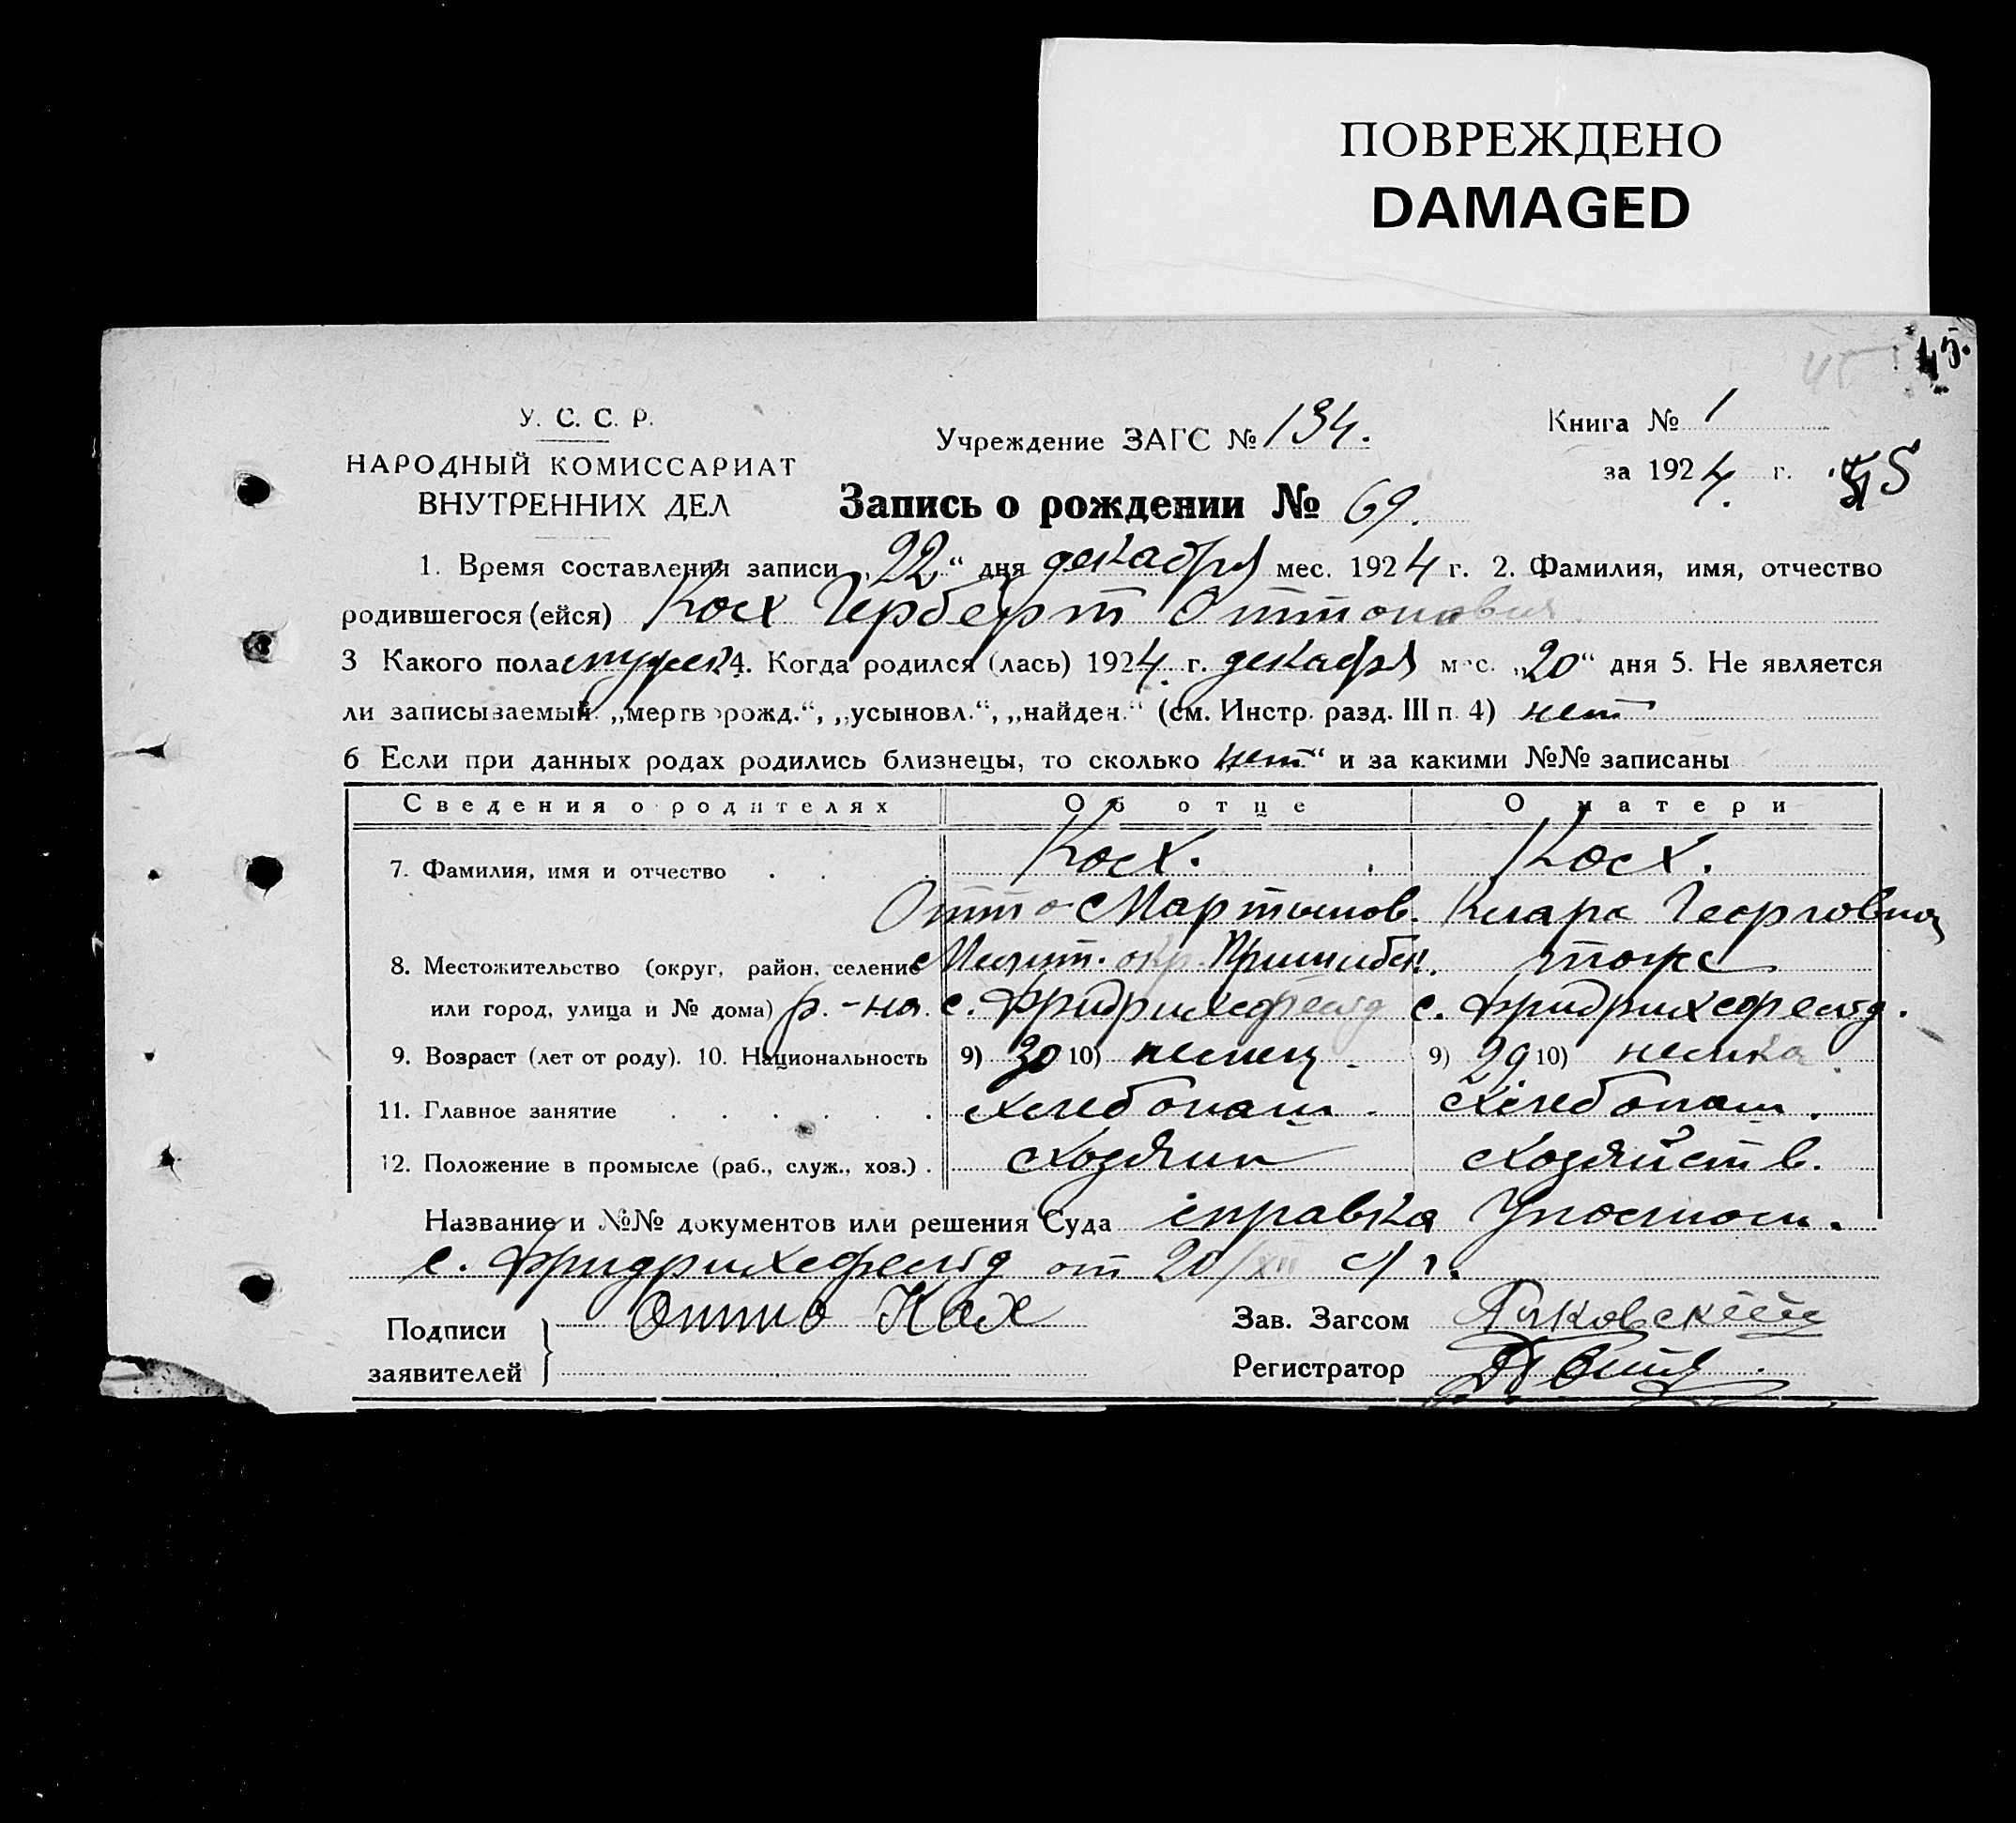 ПОВРЕЖДЕНО
DAMAGED
45.
45
У. С. С. Р.
НАРОДНЫЙ КОМИССАРИАТ
ВНУТРЕННИХ ДЕЛ
Учреждение ЗАГС № 134.
Книга № 1
за 1924 г.
Запись о рождении № 69.
1. Время составления записи „22“ дня декабря мес. 1924 г. 2. Фамилия, имя, отчество
родившегося (ейся) Кох Герберт Оттонович
3 Какого пола мужск. 4. Когда родился (лась) 1924 г. декабря мес. „20“ дня 5. Не является
ли записываемый „мертворожд.“, „усыновл.“, „найден.“ (см. Инстр. разд. III п. 4) нет
6 Если при данных родах родились близнецы, то сколько нет“ и за какими №№ записаны
Сведения о родителях Об отце О матери
7. Фамилия, имя и отчество Кох. Кох.
Отто Мартынов. Клара Георговна
8. Местожительство (округ, район, селение Мелит. окр. Пришибск. тоже
или город, улица и № дома) р.-на. с. Фридрихсфельд с. Фридрихсфельд.
9. Возраст (лет от роду). 10. Национальность 9) 30 10) немец. 9) 29 10) немка.
11. Главное занятие хлебопаш. хлебопаш.
12. Положение в промысле (раб., служ., хоз.) хозяин хозяйств.
Название и №№ документов или решения Суда справка Уполном.
с. Фридрихсфельд от 20/XII с/г.
Подписи Отто Кох Зав. Загсом
заявителей Регистратор